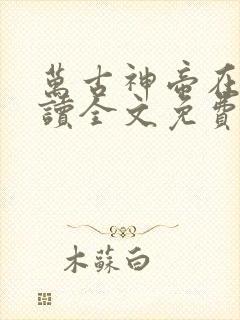 萬古神帝在
讀全文免費
木蘇白